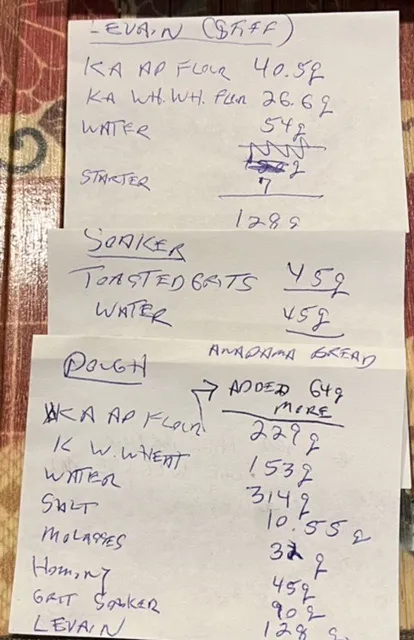 LEVAIN (STIFF)
KA AP FLOUR 40.5g
KA WH. WH. FLUR 26.6g
WATER 54g
STARTER 7
128g
SOAKER
TOASTED GRITS 45g
WATER 45g
ANADAMA BREAD
DOUGH
→ ADDED 64g
MORE
KA AP FLOUR 229g
K W. WHEAT 153g
WATER 314g
SALT 10.55g
MOLASSES 32g
HOMINY 45g
GRIT SOAKER 90g
LEVAIN 128g